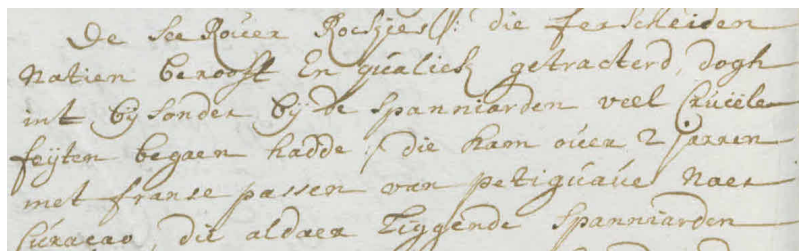 De see Rover Rockjes /: die ferscheiden
Natien berooft En qualick getracterd, dogh
int bysonder by de spanniarden veel Cruëele
feyten begaen hadde :/ die kam over 2 jarren
met franse passen van petiguave Naer
Curacao, die aldaer Liggende spanniarden